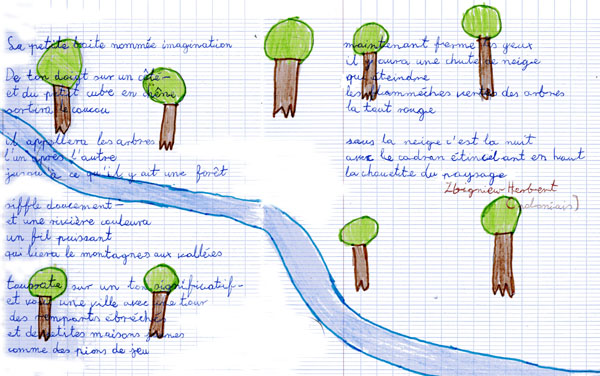 La petite boîte nommée imagination
De ton doigt sur un côté—
et du petit cube en chêne
sortira le coucou
il appellera les arbres
l'un après l'autre
jusqu'à ce qu'il y ait une forêt
siffle doucement—
et une rivière coulera
un fil puissant
qui liera le montagnes aux vallées
toussote sur un ton significatif—
et voici une ville avec une tour
des remparts ébréchés
et de petites maisons jaunes
comme des pions de jeu
maintenant ferme les yeux
il y aura une chute de neige
qui éteindre
les flammèches vertes des arbres
la tour rouge
sous la neige c'est la nuit
avec le cadran étincelant en haut
la chouette du paysage
Zbigniew Herbert